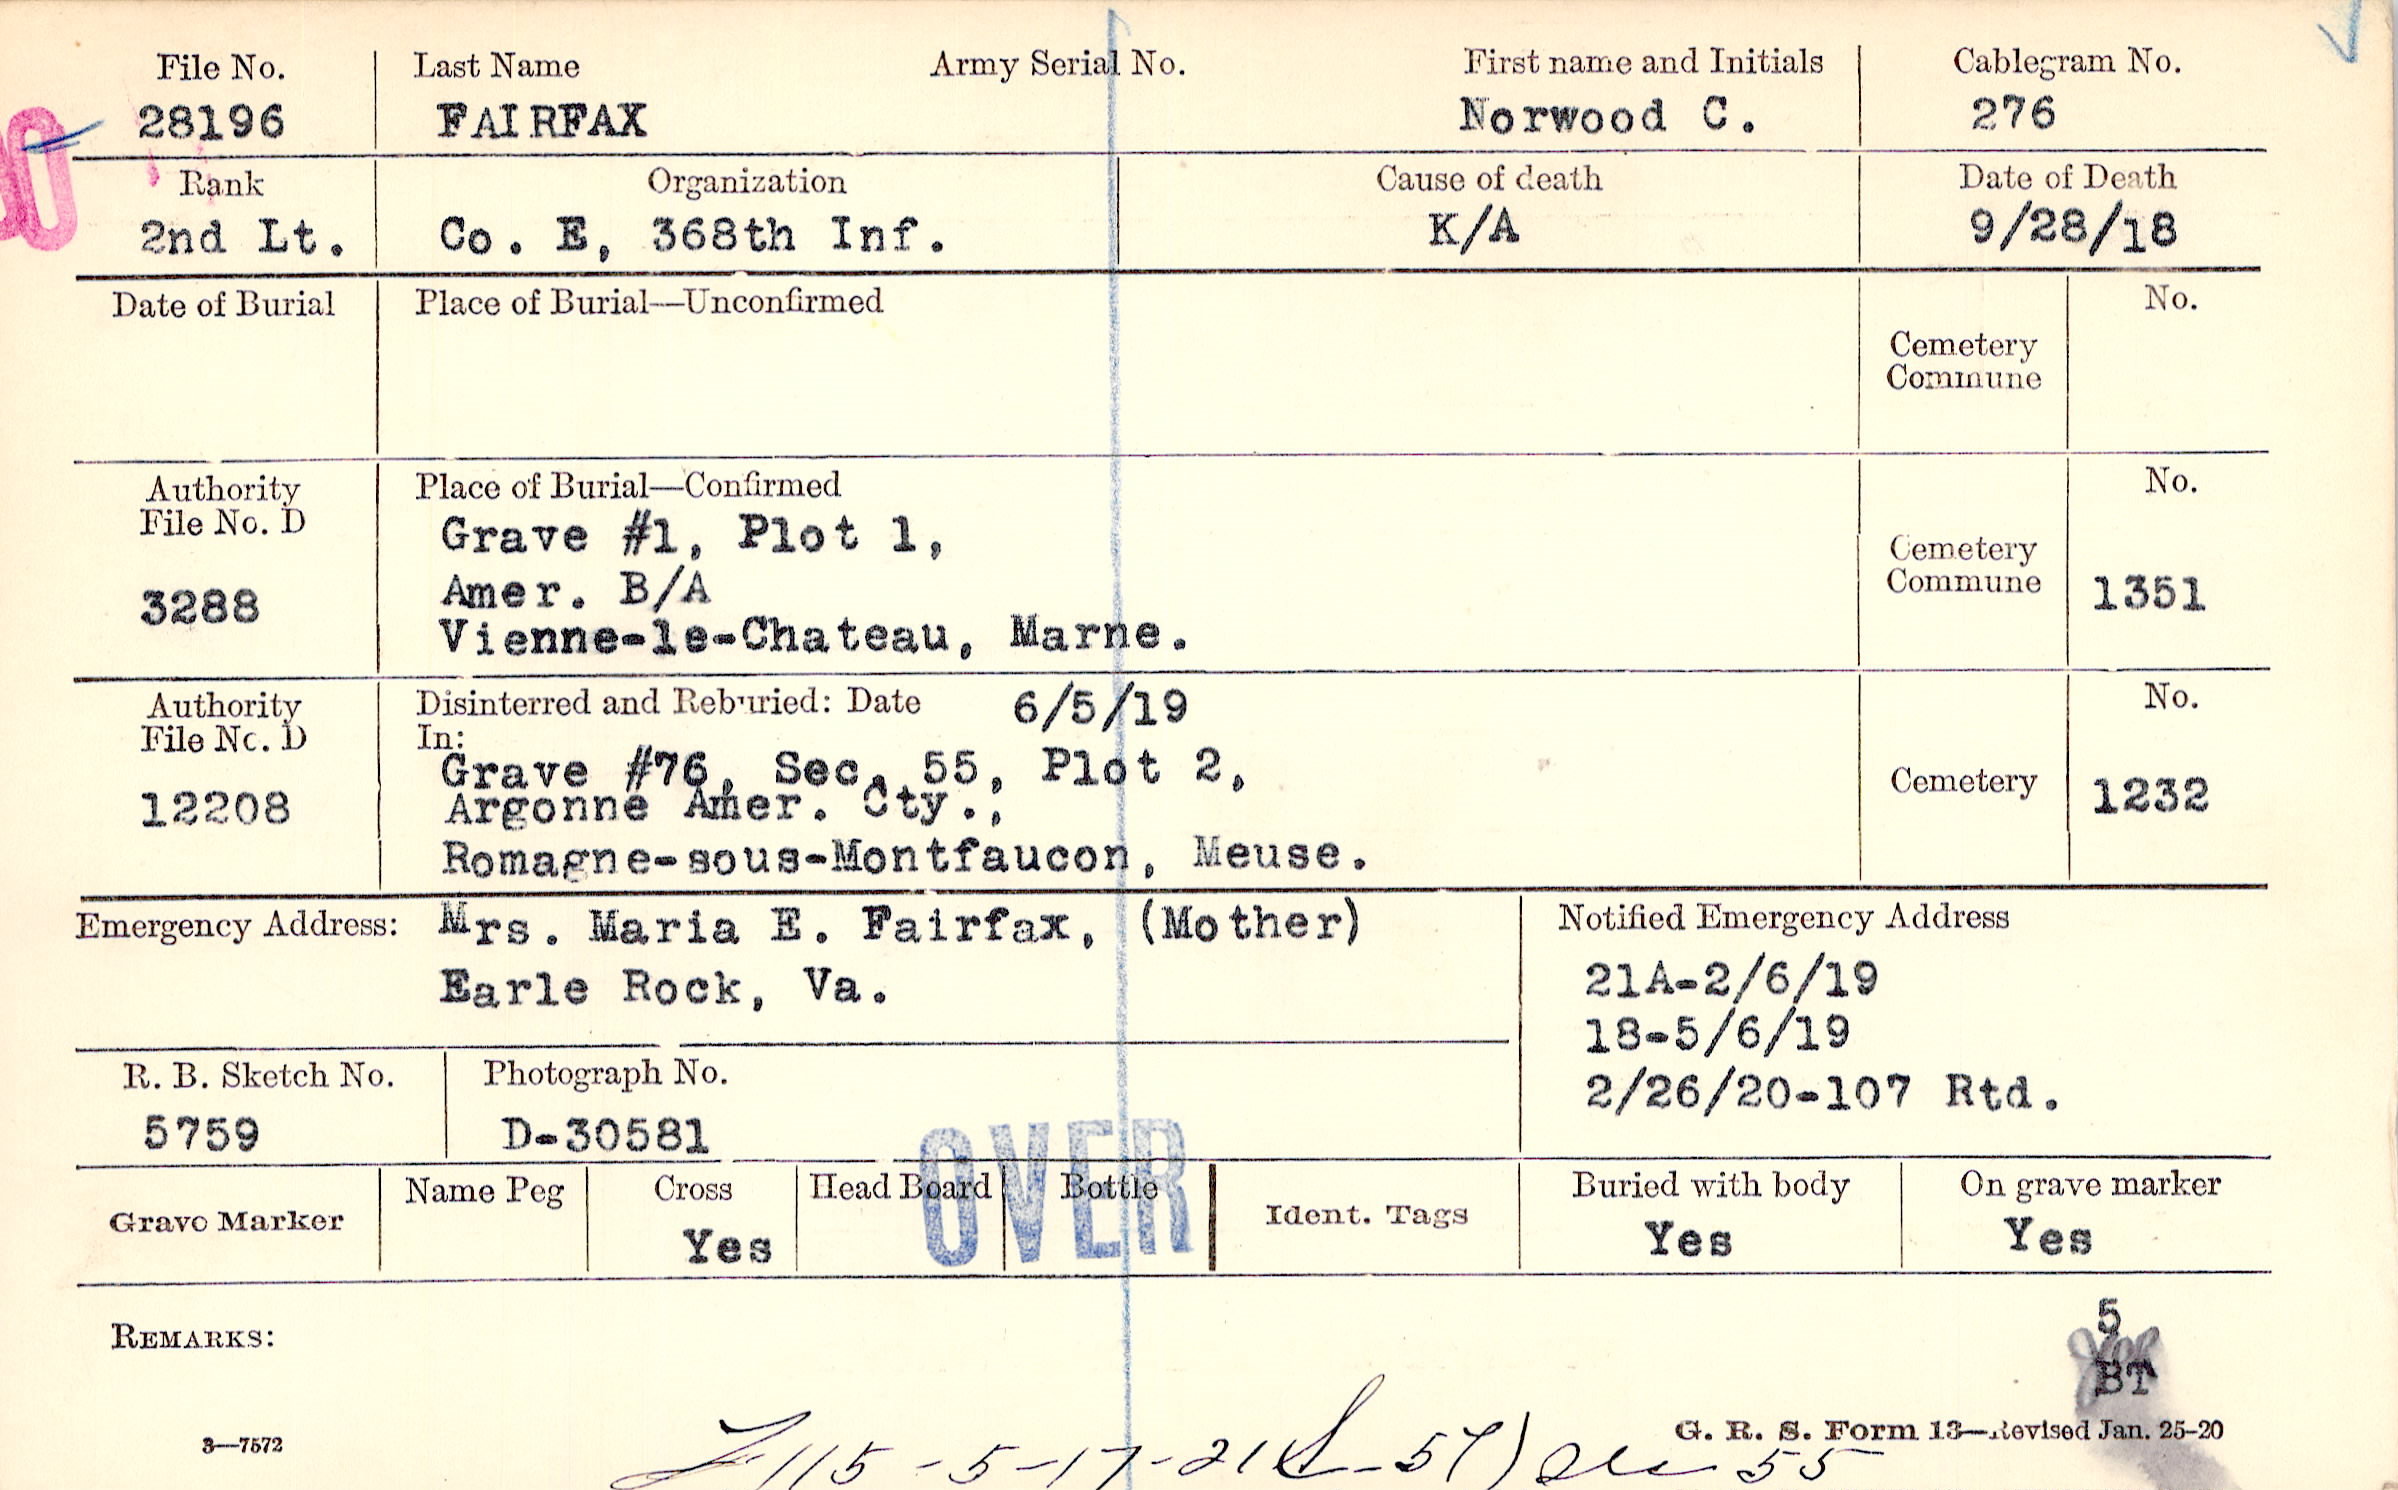 File No. Last Name Army Serial No. First name and Initials Cablegram No.
28196 FAIRFAX Norwood C. 276
Rank Organization Cause of death Date of Death
2nd Lt. Co. E, 368th Inf. K/A 9/28/18
Date of Burial Place of Burial—Unconfirmed No.
Cemetery
Commune
Authority Place of Burial—Confirmed No.
File No. D
Grave #1, Plot 1,
Cemetery
3288 Amer. B/A Commune 1351
Vienne-le-Chateau, Marne.
Authority Disinterred and Reburied: Date 6/5/19 No.
File No. D In:
Grave #76, Sec. 55, Plot 2,
12208 Argonne Amer. Cty., Cemetery 1232
Romagne-sous-Montfaucon, Meuse.
Emergency Address: Mrs. Maria E. Fairfax, (Mother) Notified Emergency Address
Earle Rock, Va. 21A-2/6/19
18-5/6/19
R. B. Sketch No. Photograph No. 2/26/20-107 Rtd.
5759 D-30581
OVER
Grave Marker Name Peg Cross Head Board Bottle Ident. Tags Buried with body On grave marker
Yes Yes Yes
5
REMARKS:
BT
3—7572 G. R. S. Form 13—Revised Jan. 25-20
115-5-17-21 55